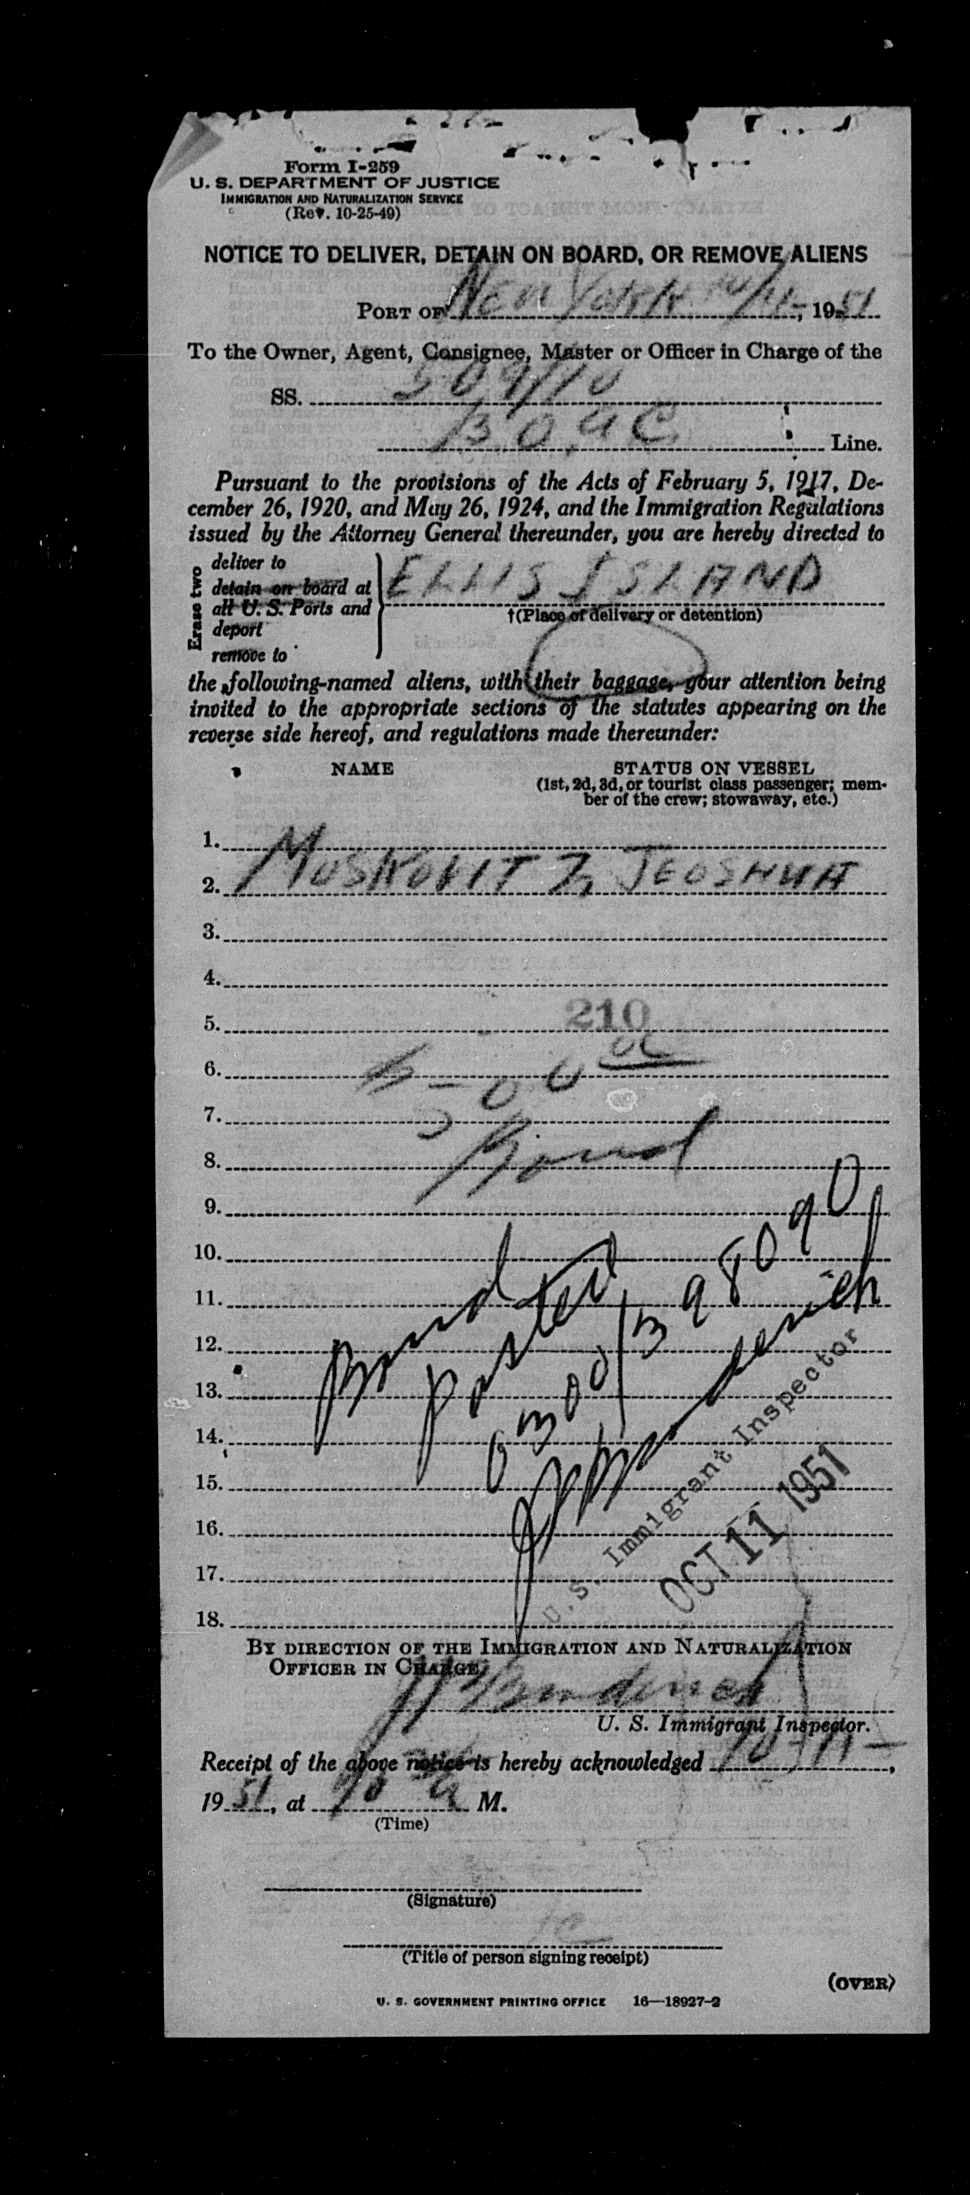 Form I-259
U. S. DEPARTMENT OF JUSTICE
IMMIGRATION AND NATURALIZATION SERVICE
(Rev. 10-25-49)
NOTICE TO DELIVER, DETAIN ON BOARD, OR REMOVE ALIENS
PORT OF New York 10/11, 1951
To the Owner, Agent, Consignee, Master or Officer in Charge of the
SS. 509/10
B O A C Line.
Pursuant to the provisions of the Acts of February 5, 1917, De-
cember 26, 1920, and May 26, 1924, and the Immigration Regulations
issued by the Attorney General thereunder, you are hereby directed to
Erase two
deliver to
detain on board at
all U. S. Ports and
deport
remove to
ELLIS ISLAND
†(Place of delivery or detention)
the following-named aliens, with their baggage, your attention being
invited to the appropriate sections of the statutes appearing on the
reverse side hereof, and regulations made thereunder:
NAME STATUS ON VESSEL
(1st, 2d, 3d, or tourist class passenger; mem-
ber of the crew; stowaway, etc.)
1.
2. MUSKOVITZ, JEOSHUA
3.
4.
5. 210
6. 500 00
7.
8. Bond
9.
10.
11.
12.
13.
14.
15.
16.
17.
18.
Bond
posted
0300/398090
U.S. Immigrant Inspector
OCT 11 1951
BY DIRECTION OF THE IMMIGRATION AND NATURALIZATION
OFFICER IN CHARGE,
U. S. Immigrant Inspector.
Receipt of the above notice is hereby acknowledged 10-11-,
1951, at 10 A M.
(Time)
(Signature)
(Title of person signing receipt)
(OVER)
U. S. GOVERNMENT PRINTING OFFICE 16—18927-2